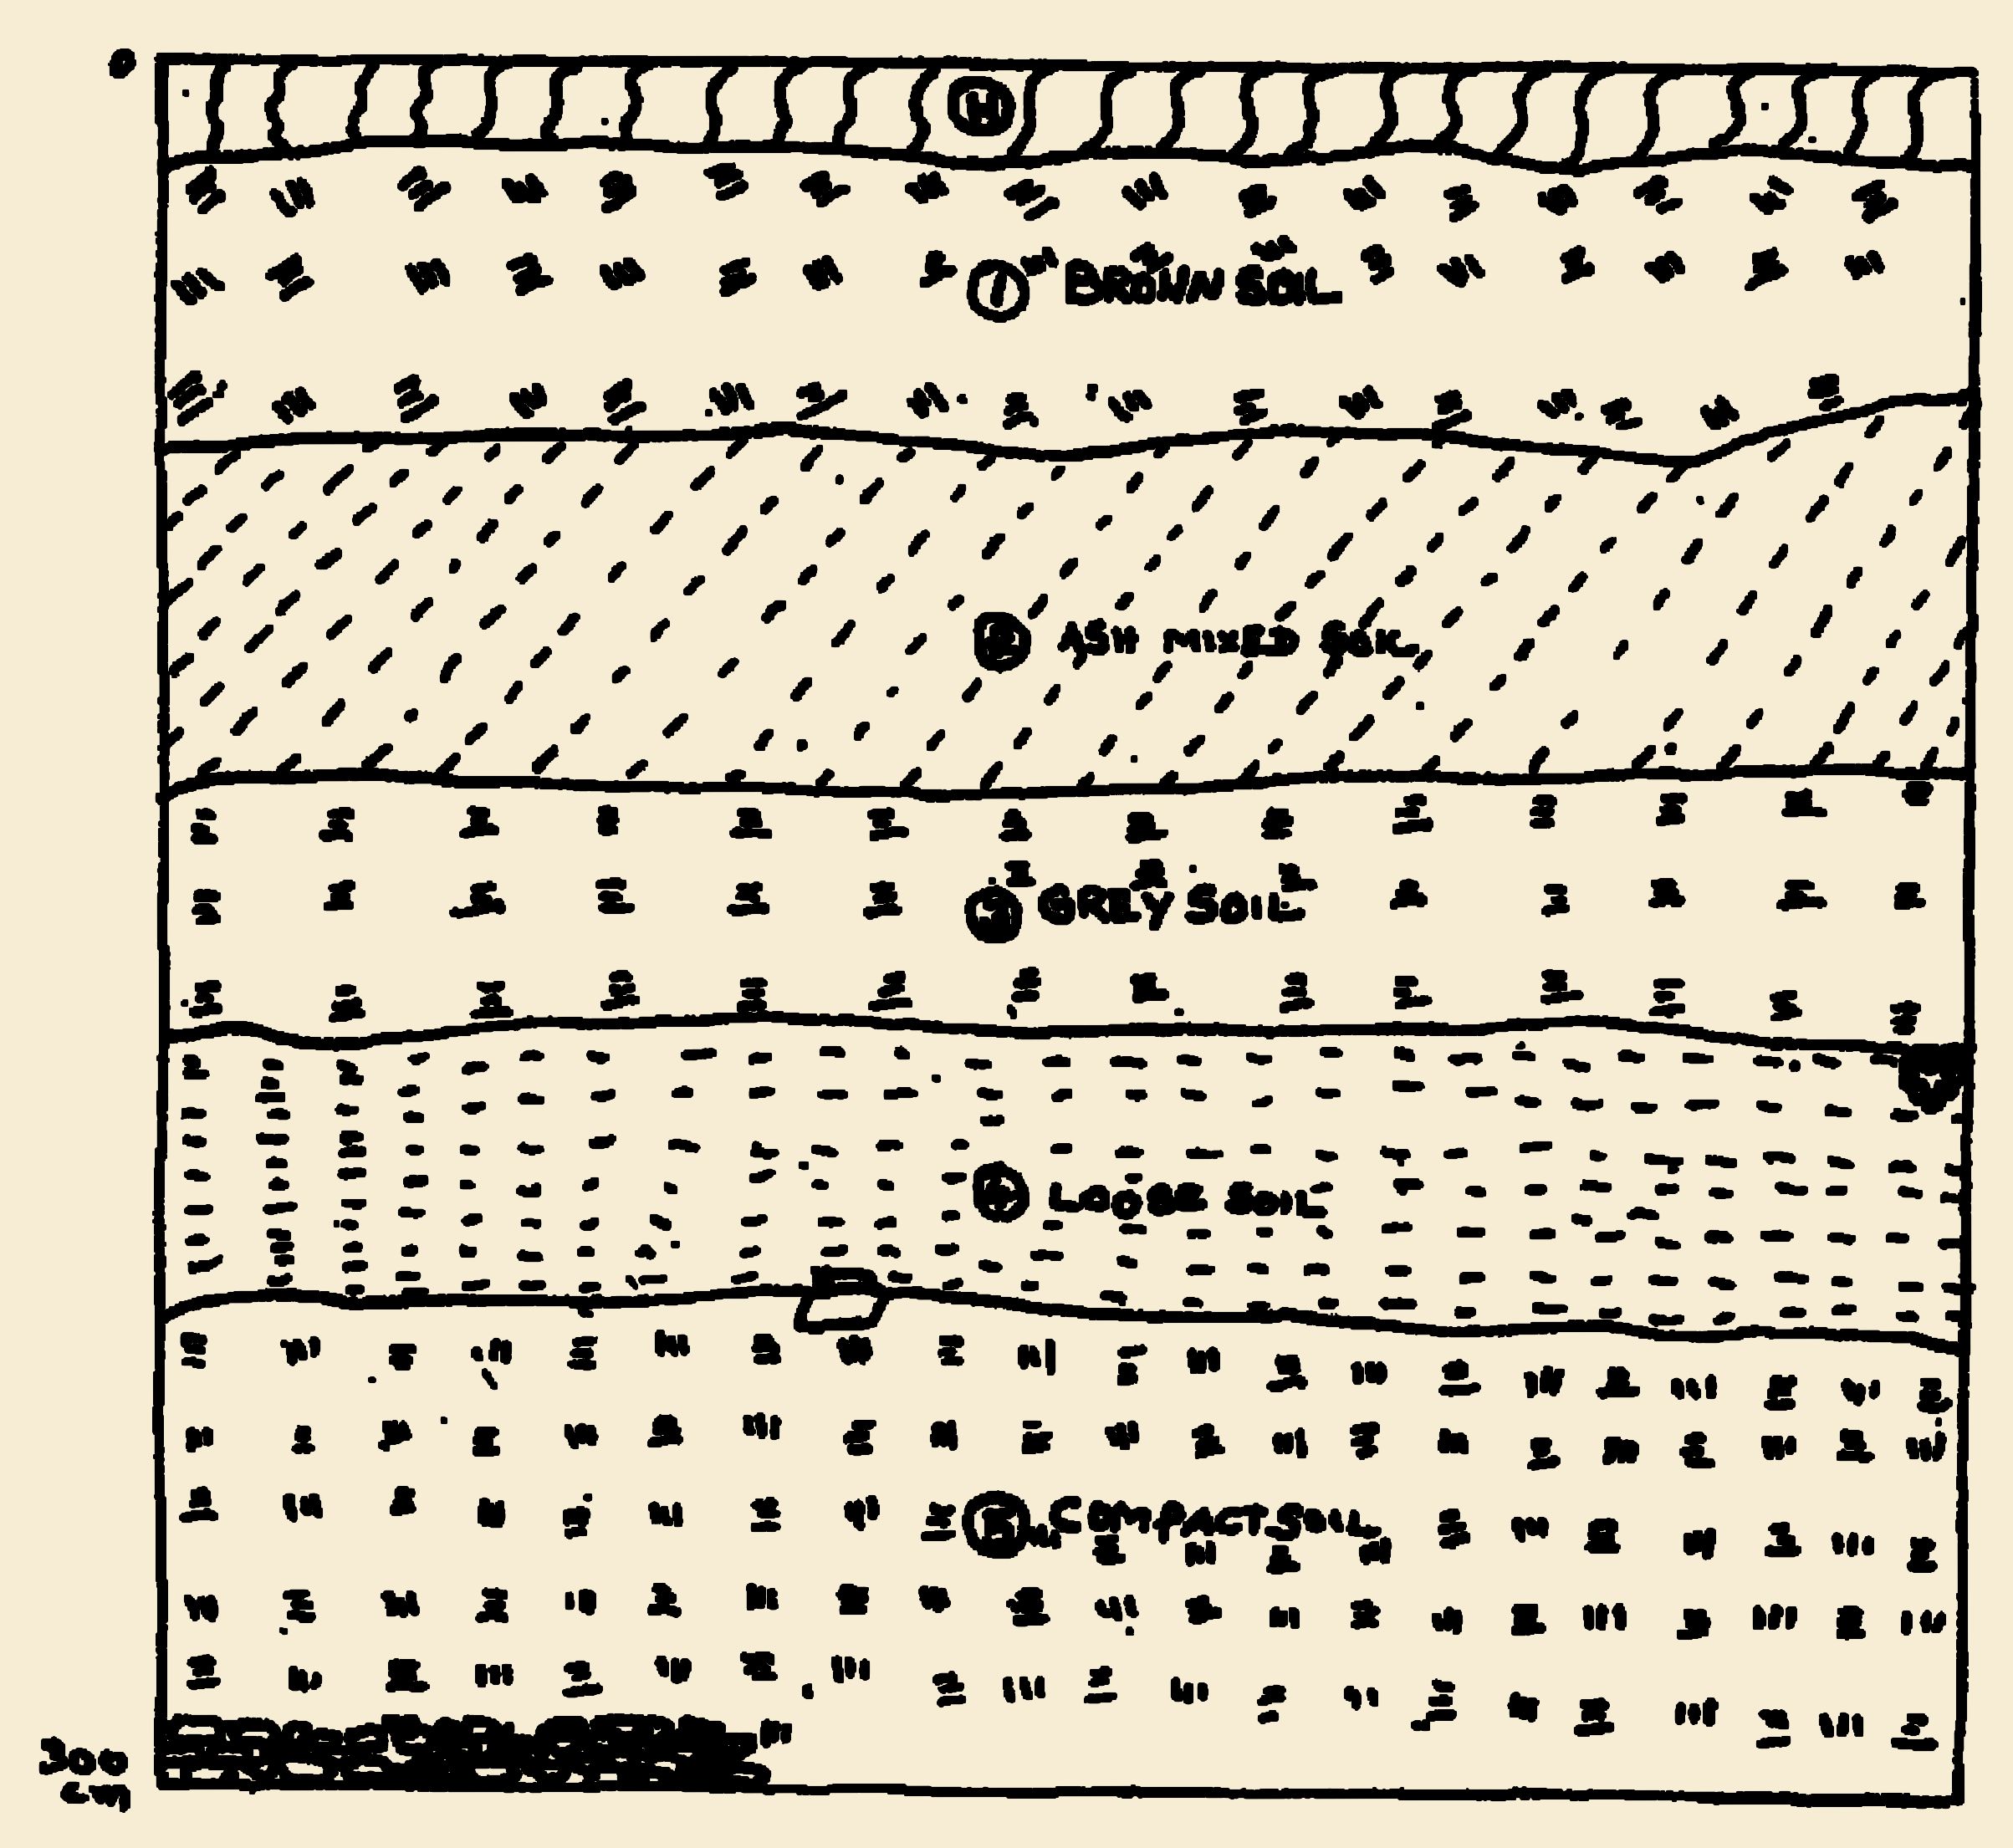 0
H
1 BROWN SOIL
2 ASH MIXED SOIL
3 GREY SOIL
4 LOOSE SOIL
5 COMPACT SOIL
300
cm